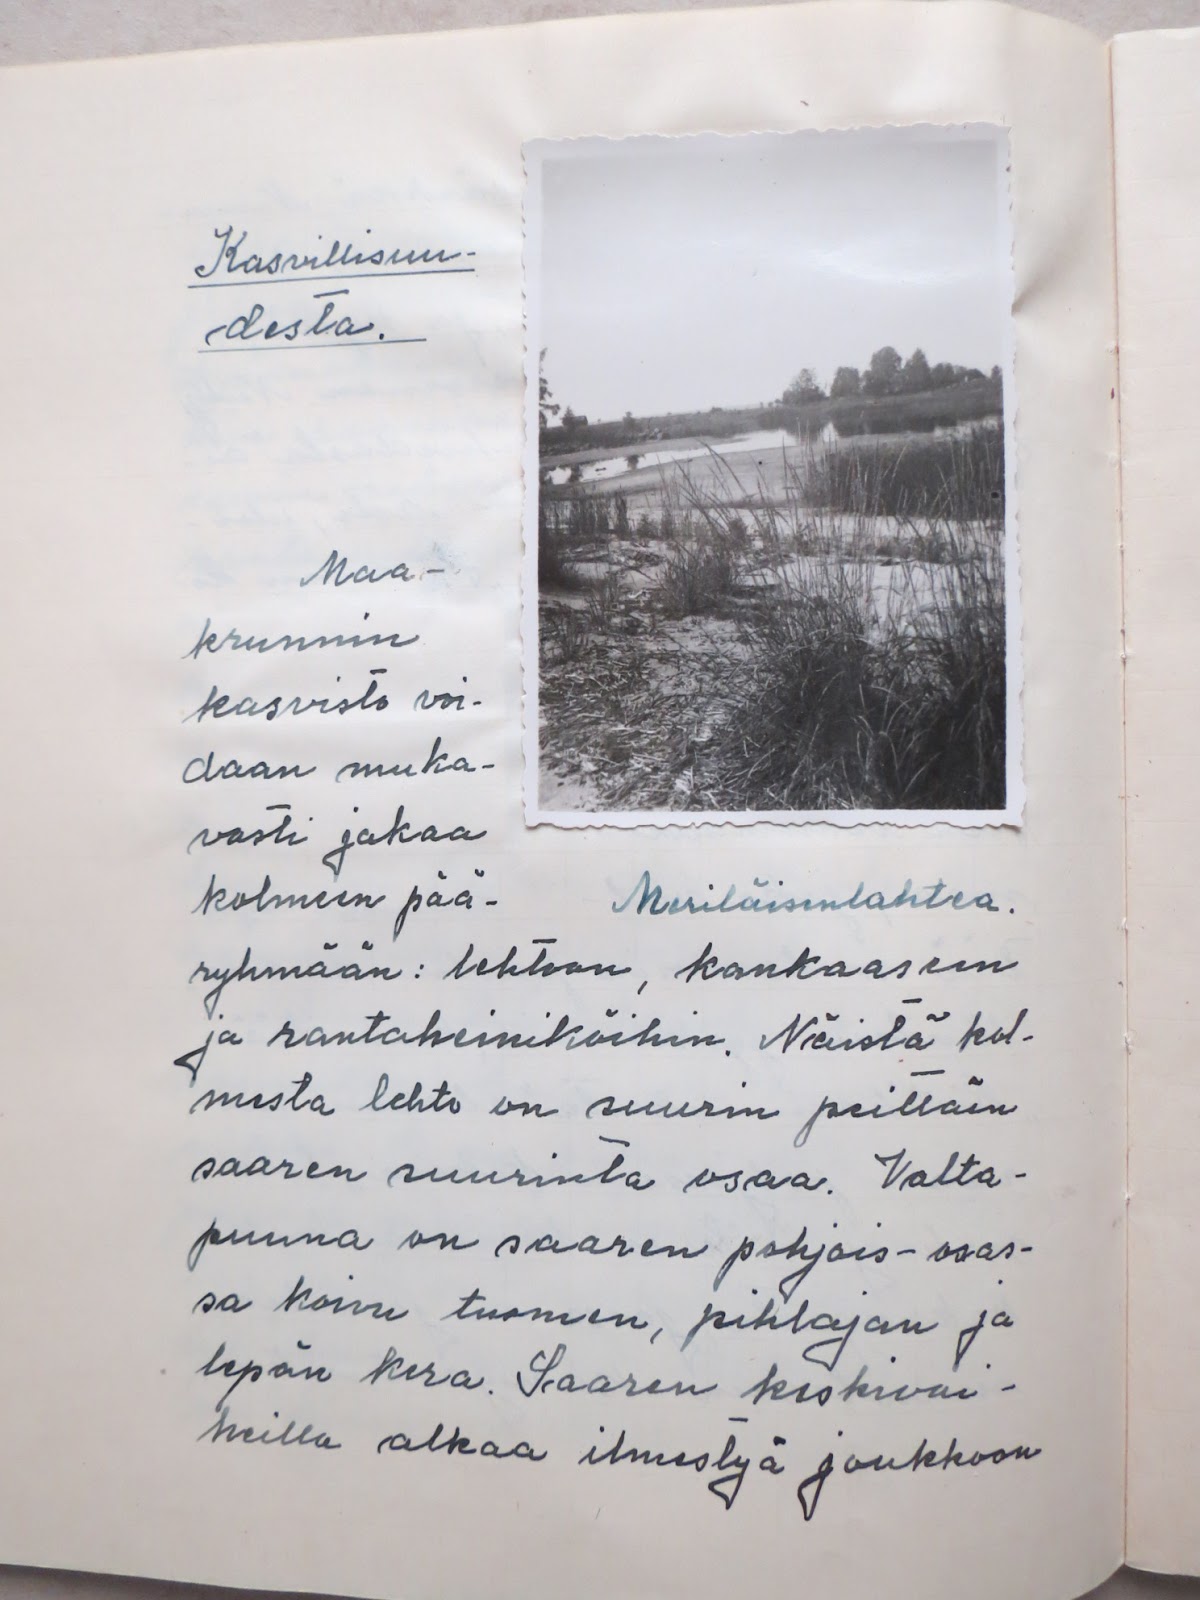 Kasvillisuu-
desta.
Maa-
krunnin
kasvisto voi-
daan muka-
vasti jakaa
kolmeen pää-
ryhmään: lehtoon, kankaaseen
ja rantaheiniköihin. Näistä kol-
mesta lehto on suurin peittäen
saaren suurinta osaa. Valta-
puuna on saaren pohjois-osas-
sa koivu tuomen, pihlajan ja
lepän kera. Saaren keskivai-
heilla alkaa ilmestyä joukkoon
Meriläisenlahtea.